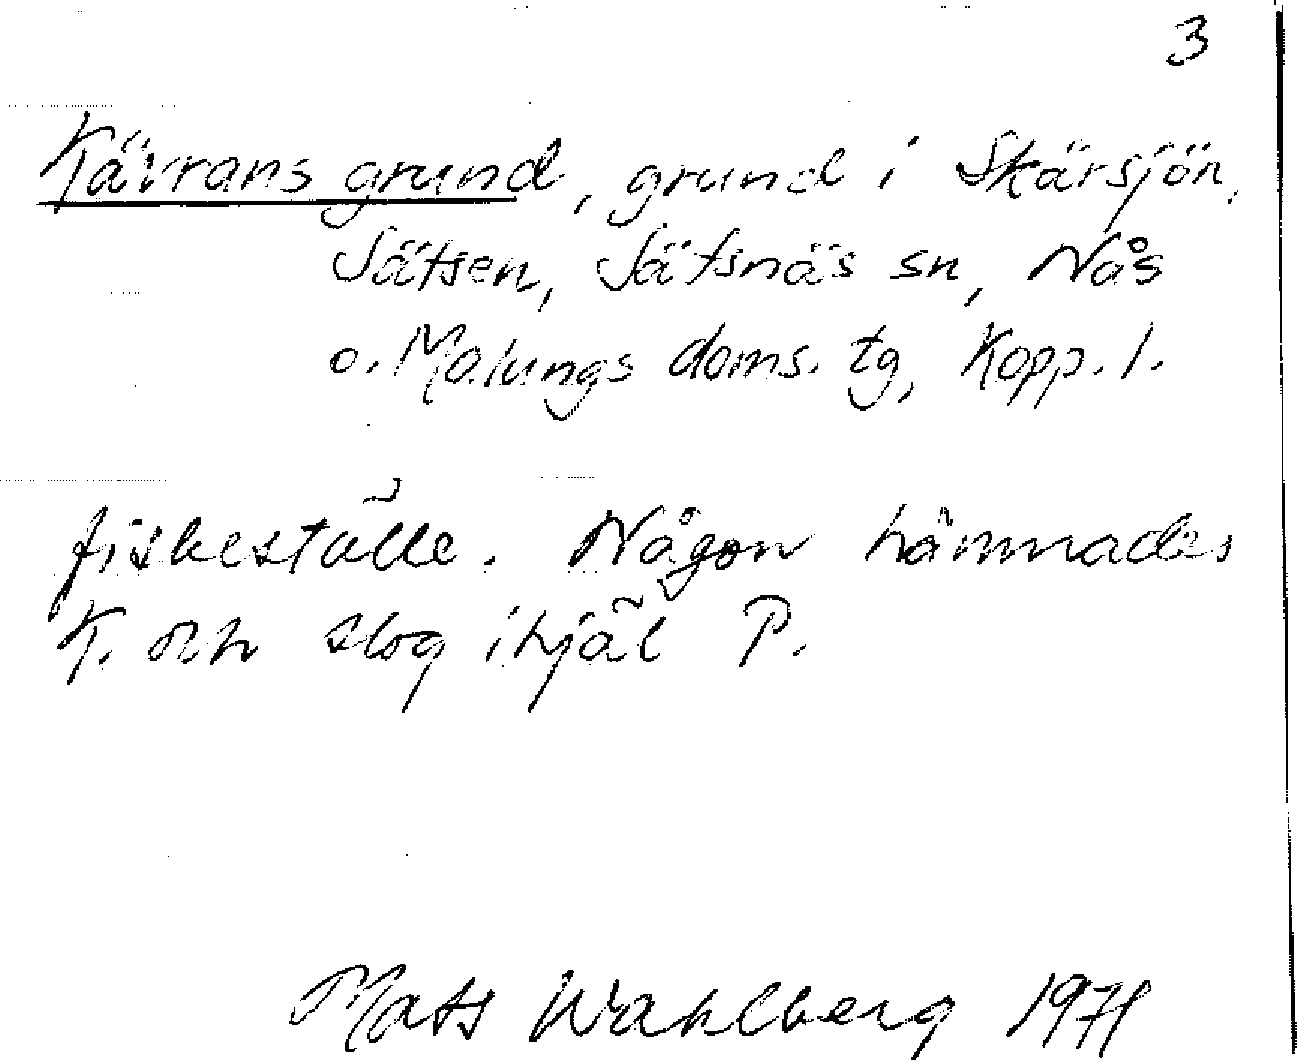 3
Kävrans grund, grund i Skärsjön,
Sätsen, Sätsnäs sn, Nås
o. Malungs doms. tg, Kopp. l.
fiskeställe. Någon hämnades
K. och slog ihjäl P.
Mats Wahlberg 1971